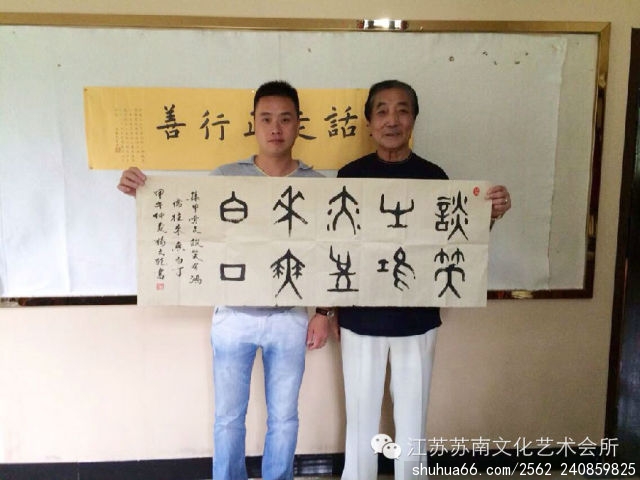 話 正行善
談笑
有鴻
儒往
來無
白丁
集甲骨文談笑有鴻
儒往來無白丁
甲午仲夏楊 書
江苏苏南文化艺术会所
shuhua66.com/2562 240859825